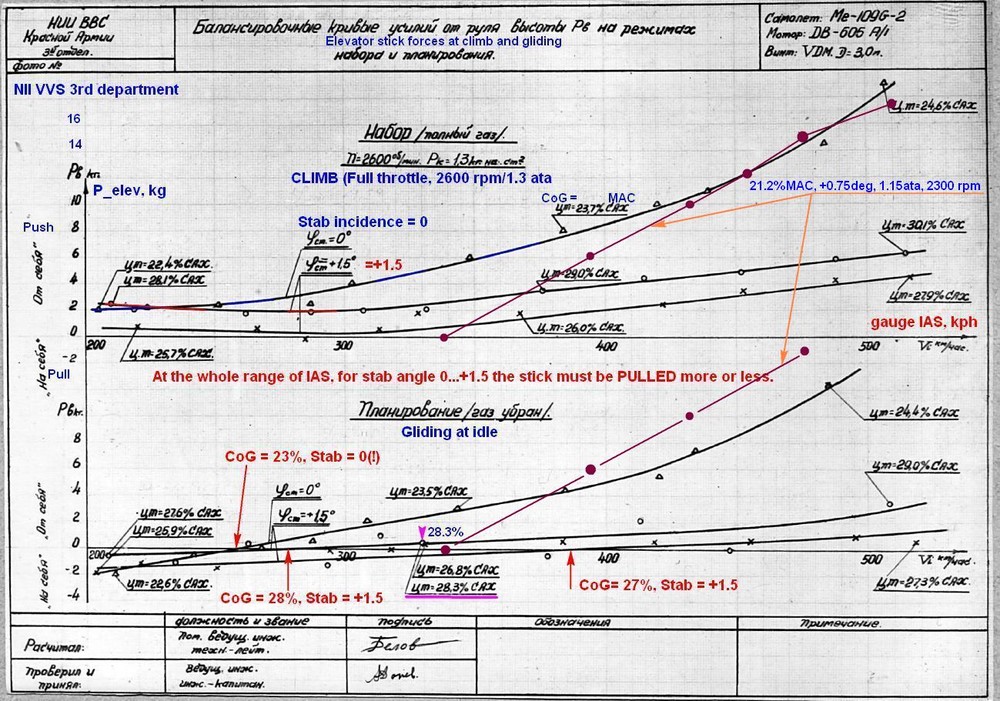 НИИ ВВС
Красной Армии
3й отдел.
фото №
Балансировочные кривые усилий от руля высоты Рв на режимах
Elevator stick forces at climb and gliding
набора и планирования.
Самолет: Ме-109G-2
Мотор: DB-605 А/1
Винт: VDM. D=3,0м.
NII VVS 3rd department
16
14
Набор /полный газ/.
П=2600об/мин. Рк=1,3кг на см²
CLIMB (Full throttle, 2600 rpm/1.3 ata
Рв кг.
P_elev, kg
Цт=24,6% САХ
21.2%MAC, +0.75deg, 1.15ata, 2300 rpm
CoG = MAC
Цт=23,7% САХ
10
Push
8
Stab incidence = 0
φст=0°
φст=+1,5° =+1.5
6
4
2
0
-2
"От себя"
Цт=22,4% САХ
Цт=28,1% САХ
Цт=30,1% САХ
Цт=29,0% САХ
Цт=27,9% САХ
Цт=26,0% САХ
Цт=25,7% САХ
gauge IAS, kph
200
300
400
500
Vi км/час.
"На себя"
Pull
At the whole range of IAS, for stab angle 0...+1.5 the stick must be PULLED more or less.
Рв кг.
Планирование /газ убран/.
Gliding at idle
Цт=24,4% САХ
8
6
4
2
0
-2
-4
"От себя"
"На себя"
CoG = 23%, Stab = 0(!)
φст=0°
φст=+1,5°
Цт=23,5% САХ
Цт=29,0% САХ
Цт=27,6% САХ
Цт=25,9% САХ
28.3%
200
300
400
500
Vi км/час.
Цт=26,8% САХ
Цт=28,3% САХ
Цт=22,6% САХ
Цт=27,3% САХ
CoG = 28%, Stab = +1.5
CoG= 27%, Stab = +1.5
должность и звание
подпись
Обозначения
Примечание.
Расчитал:
Пом. ведущ. инж.
техн.-лейт.
Белов
Проверил и
принял:
Ведущ. инж.
инж.-капитан.